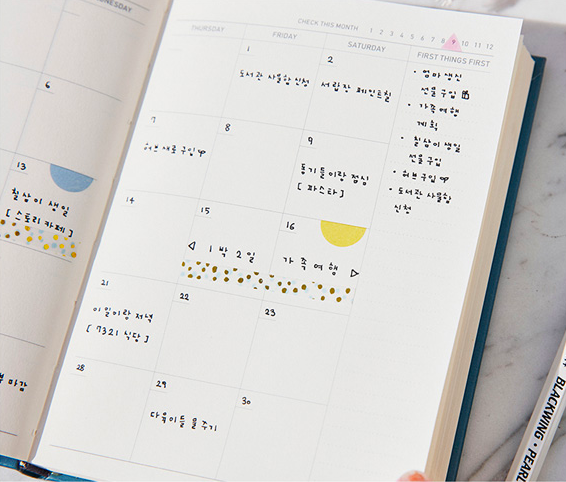 WEDNESDAY
6
13
칠상이 생일
[ 스토리 카페 ]
마감
CHECK THIS MONTH 1 2 3 4 5 6 7 8 9 10 11 12
THURSDAY FRIDAY SATURDAY FIRST THINGS FIRST
1 2
도서관 사물함 신청 서랍장 페인트칠
7 8 9
허브 재료 구입
동기들이랑 점심
[ 파스타 ]
14 15 16
◁ 1박 2일 가족여행 ▷
21 22 23
이일이랑 저녁
[ 7321 식당 ]
28 29 30
다육이들 물 주기
• 엄마 생신
선물 구입
• 가족여행
계획
• 칠상이 생일
선물 구입
• 허브 구입
• 도서관 사물함
신청
BLACKWING • PEARL